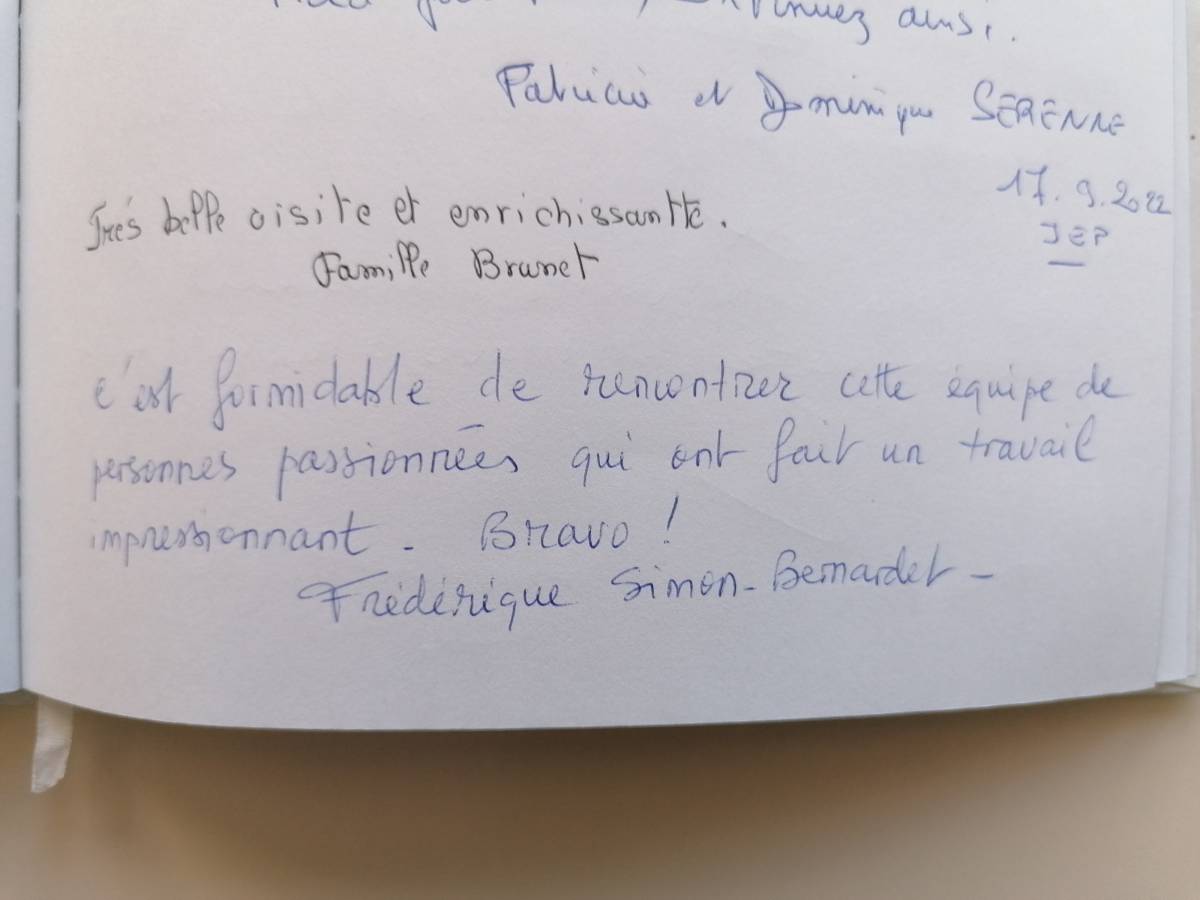 continuez ainsi.
Patricia et Dominique SERENNE
17.9.2022
JEP
Très belle visite et enrichissantte.
Famille Brunet
c'est formidable de rencontrer cette équipe de
personnes passionnées qui ont fait un travail
impressionnant. Bravo !
Frédérique Simon-Bernardet-